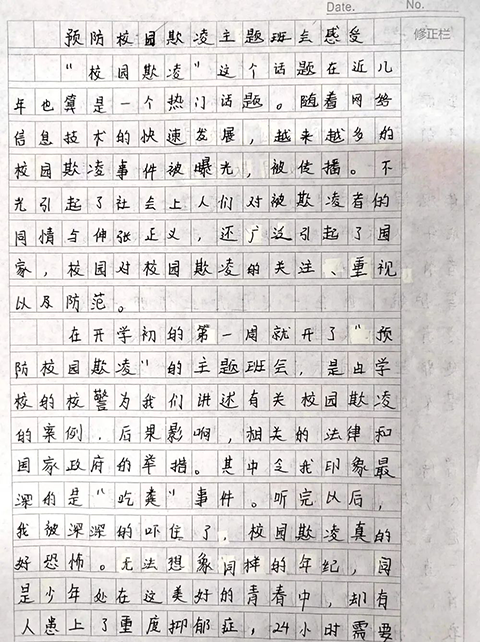 Date.
No.
修正栏
预防校园欺凌主题班会感受
“校园欺凌”这个话题在近几
年也算是一个热门话题。随着网络
信息技术的快速发展，越来越多的
校园欺凌事件被曝光，被传播。不
光引起了社会上人们对被欺凌者的
同情与伸张正义，还广泛引起了国
家，校园对校园欺凌的关注、重视
以及防范。
在开学初的第一周就开了“预
防校园欺凌”的主题班会，是由学
校的校警为我们讲述有关校园欺凌
的案例，后果影响，相关的法律和
国家政府的举措。其中令我印象最
深的是“吃粪”事件。听完以后，
我被深深的吓住了，校园欺凌真的
好恐怖。无法想象同样的年纪，同
是少年处在这美好的青春中，却有
人患上了重度抑郁症，24小时需要